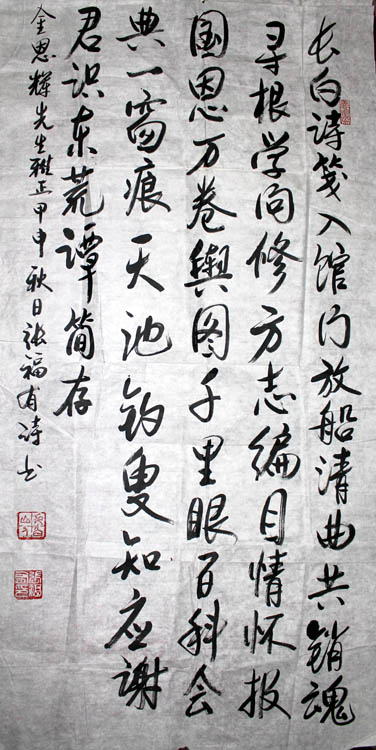 长白诗笺入馆门放船清曲共销魂
寻根学问修方志编目情怀报
国恩万卷舆图千里眼百科会
典一窗痕天池钓叟知应谢
君识东荒谭简存
金思辉先生雅正甲申秋日张福有诗书